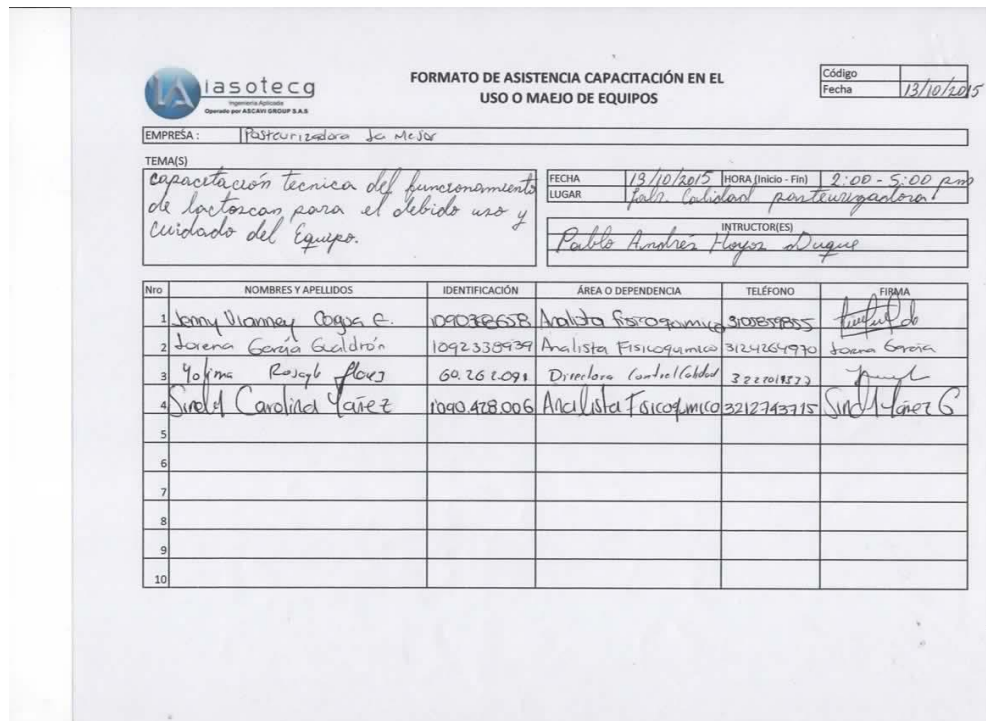 iasotecg
Ingeniería Aplicada
Operado por ASCAVI GROUP S.A.S
FORMATO DE ASISTENCIA CAPACITACIÓN EN EL
USO O MAEJO DE EQUIPOS
Código
Fecha 13/10/2015
EMPRESA : Pasteurizadora La Mejor
TEMA(S)
capacitación tecnica del funcionamiento
de lactoscan para el debido uso y
cuidado del Equipo.
FECHA 13/10/2015 HORA (Inicio - Fin) 2:00 - 5:00 pm
LUGAR Calidad pasteurizadora
INTRUCTOR(ES)
Pablo Andrés Hoyos Duque
Nro NOMBRES Y APELLIDOS IDENTIFICACIÓN ÁREA O DEPENDENCIA TELÉFONO FIRMA
1 Jenny Vianney Analista fisicoquimico 3105859855
2 Lorena García Gualdrón 1092338939 Analista Fisicoquimico 3124264970 Lorena García
3 60.262.091 Directora Control Calidad
4 Sindy Carolina Yañez 1090.428.006 Analista Fisicoquimico 3212743715 Sindy Yañez G
5
6
7
8
9
10